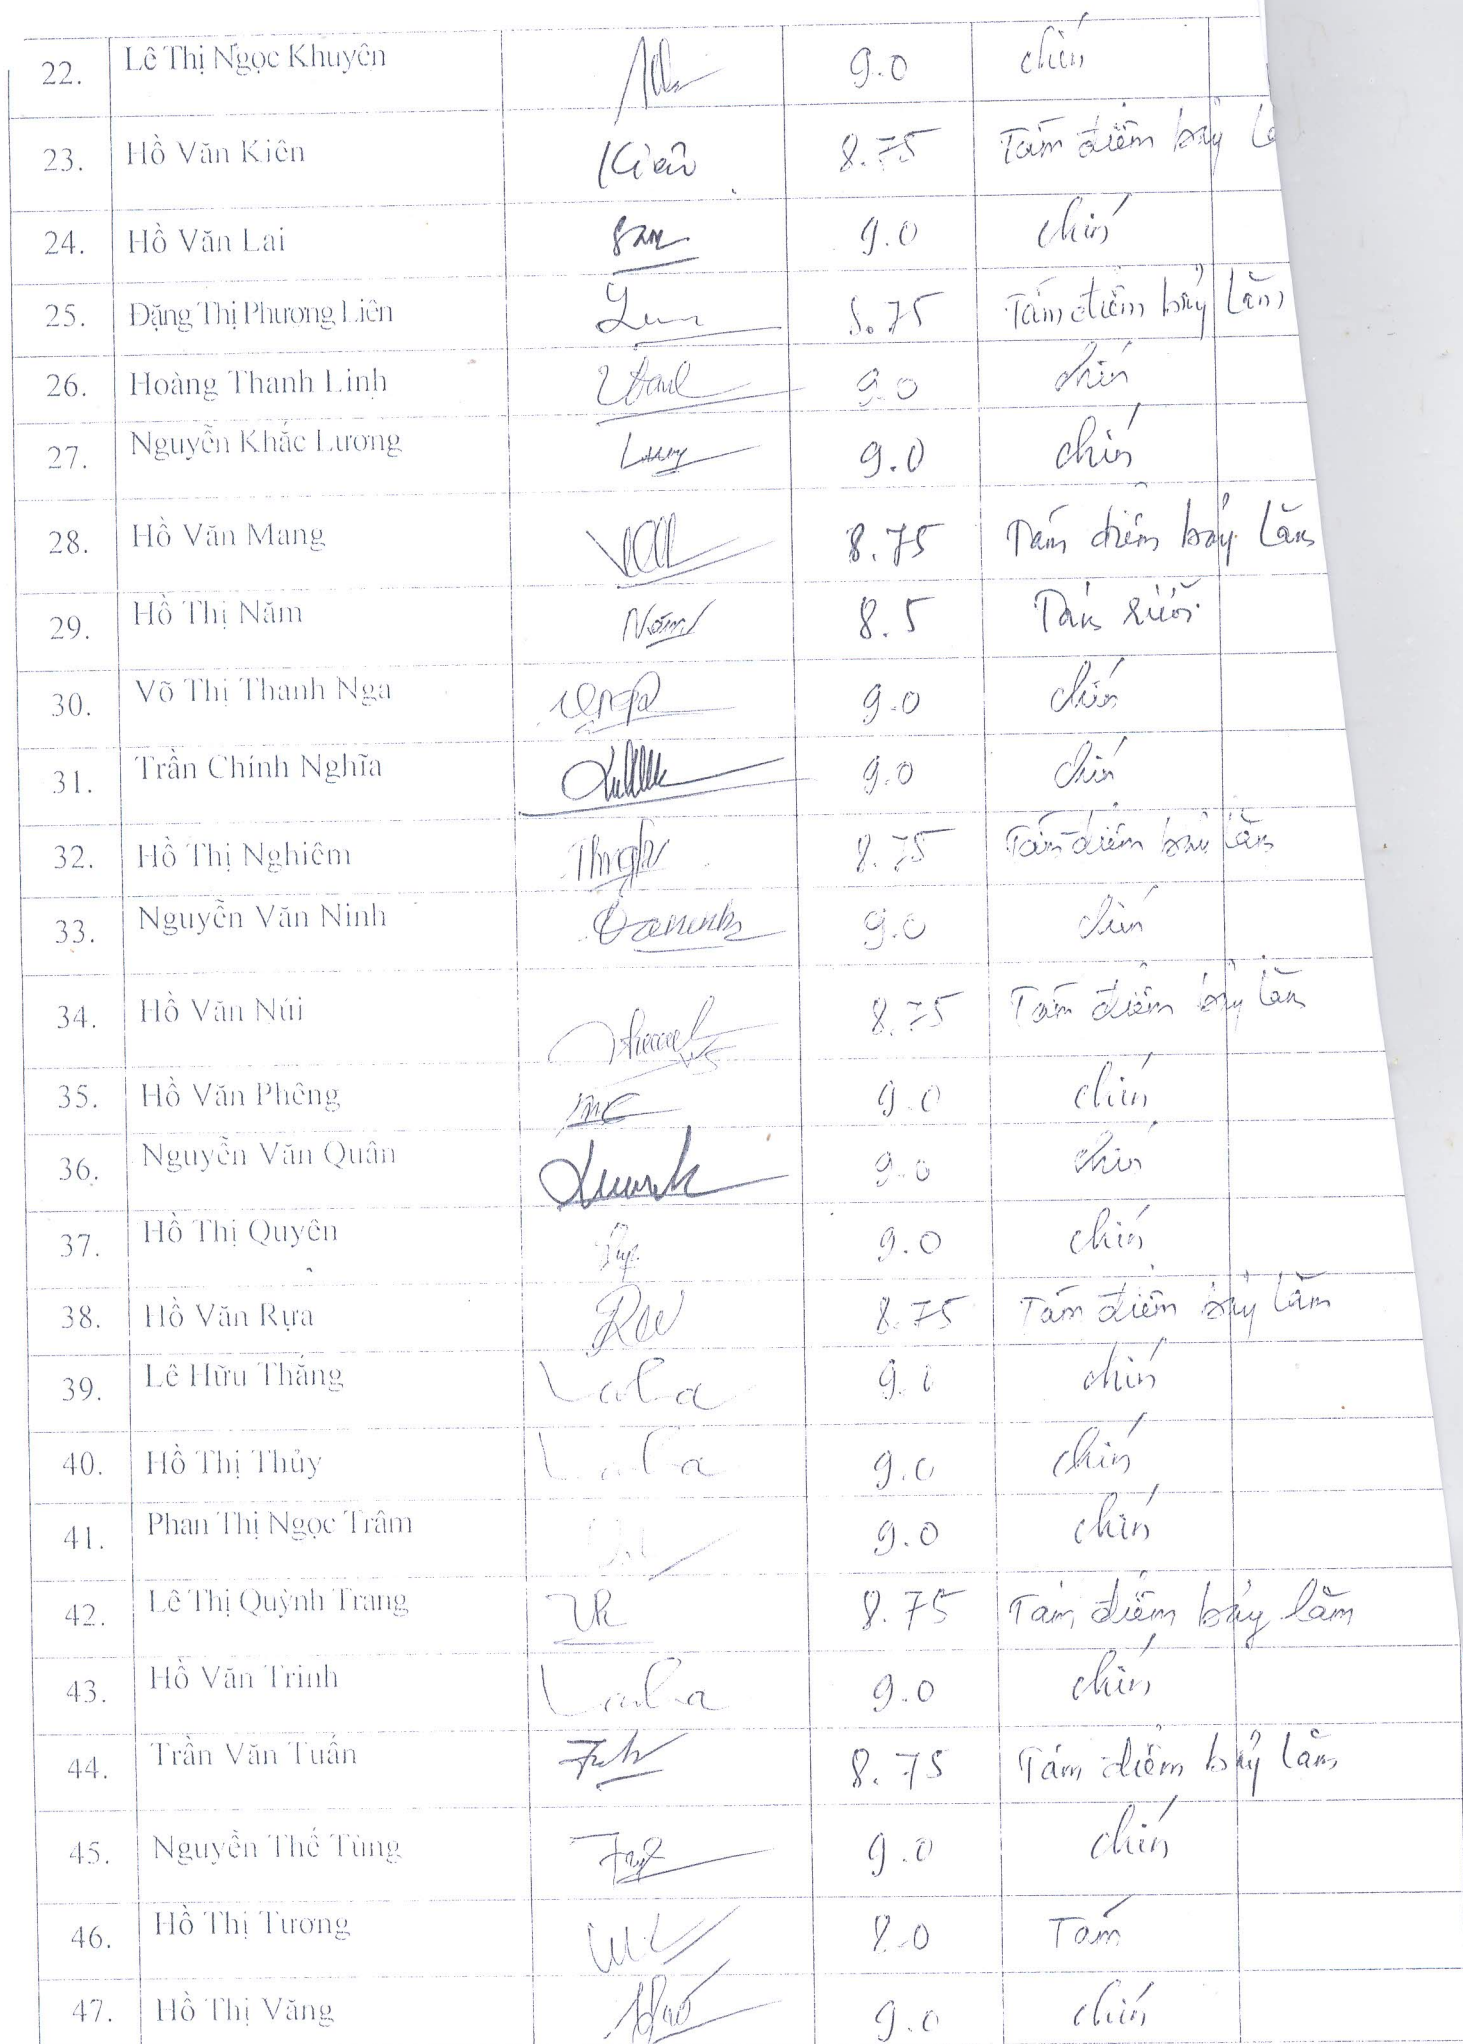 22. Lê Thị Ngọc Khuyên 9.0 chín
23. Hồ Văn Kiên Kiên 8.75 Tám điểm bảy
24. Hồ Văn Lai 9.0 chín
25. Đặng Thị Phương Liên 8.75 Tám điểm bảy lăm
26. Hoàng Thanh Linh 9.0 chín
27. Nguyễn Khắc Lương 9.0 chín
28. Hồ Văn Mang 8.75 Tám điểm bảy lăm
29. Hồ Thị Năm Năm 8.5 Tám rưỡi
30. Võ Thị Thanh Nga 9.0 chín
31. Trần Chính Nghĩa 9.0 chín
32. Hồ Thị Nghiêm 8.75 Tám điểm bảy lăm
33. Nguyễn Văn Ninh 9.0 chín
34. Hồ Văn Núi 8.75 Tám điểm bảy lăm
35. Hồ Văn Phêng 9.0 chín
36. Nguyễn Văn Quân 9.0 chín
37. Hồ Thị Quyên 9.0 chín
38. Hồ Văn Rựa 8.75 Tám điểm bảy lăm
39. Lê Hữu Thắng 9.0 chín
40. Hồ Thị Thủy 9.0 chín
41. Phan Thị Ngọc Trâm 9.0 chín
42. Lê Thị Quỳnh Trang 8.75 Tám điểm bảy lăm
43. Hồ Văn Trinh 9.0 chín
44. Trần Văn Tuấn 8.75 Tám điểm bảy lăm
45. Nguyễn Thế Tùng 9.0 chín
46. Hồ Thị Tương 8.0 Tám
47. Hồ Thị Văng 9.0 chín